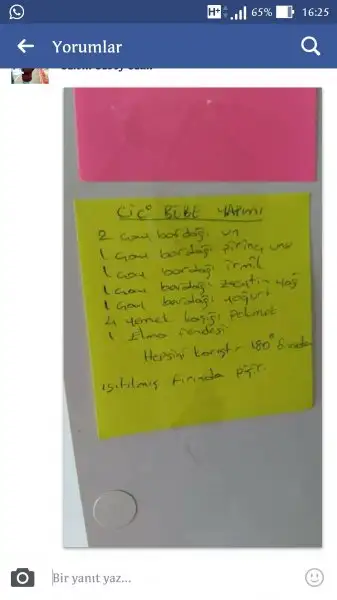 H+ 65% 16:25
Yorumlar
CİCİ BEBE YAPIMI
2 çay bardağı un
1 çay bardağı pirinç unu
1 çay bardağı irmik
1 çay bardağı zeytin yağ
1 çay bardağı yoğurt
4 yemek kaşığı pekmez
1 Elma rendesi
Hepsini karıştır 180° önceden
ısıtılmış fırında pişir.
Bir yanıt yaz...